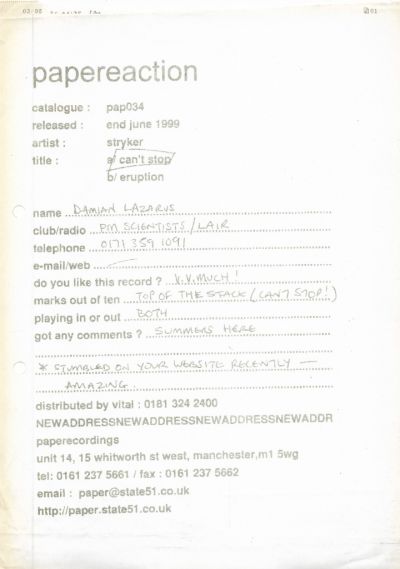 papereaction
catalogue : pap034
released : end june 1999
artist : stryker
title : a/ can't stop
b/ eruption
name DAMIAN LAZARUS
club/radio PM SCIENTISTS / LAIR
telephone 0171 359 1091
e-mail/web
do you like this record ? V.V.MUCH !
marks out of ten TOP OF THE STACK (CAN'T STOP!)
playing in or out BOTH
got any comments ? SUMMERS HERE
* STUMBLED ON YOUR WEBSITE RECENTLY —
AMAZING.
distributed by vital : 0181 324 2400
NEWADDRESSNEWADDRESSNEWADDRESSNEWADDR
paperecordings
unit 14, 15 whitworth st west, manchester,m1 5wg
tel: 0161 237 5661 / fax : 0161 237 5662
email : paper@state51.co.uk
http://paper.state51.co.uk